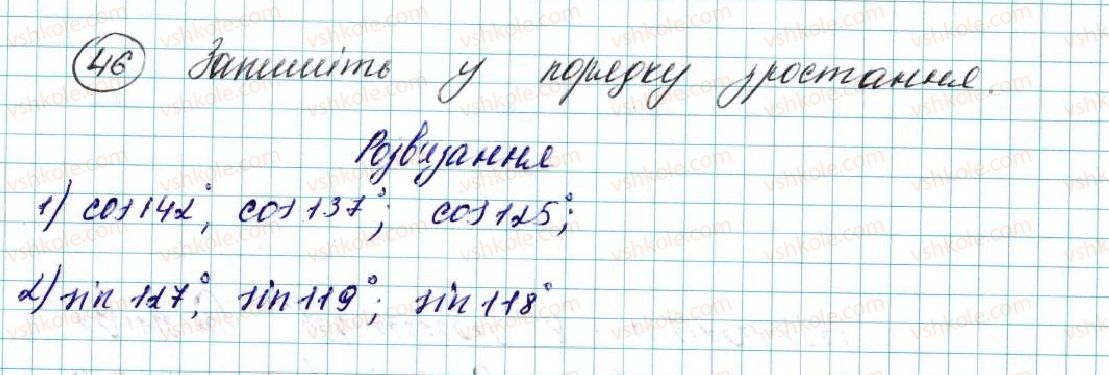 46 Запишіть у порядку зростання.
Розв'язання
1) cos 142°; cos 137°; cos 125°;
2) sin 127°; sin 119°; sin 118°